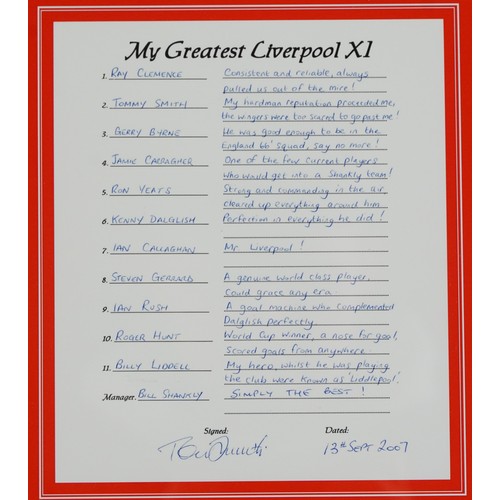 My Greatest Liverpool XI
1. RAY CLEMENCE Consistent and reliable, always
pulled us out of the mire!
2. TOMMY SMITH My hardman reputation proceeded me,
the wingers were too scared to go past me!
3. GERRY BYRNE He was good enough to be in the
England 66' squad, say no more!
4. JAMIE CARRAGHER One of the few current players
who would get into a Shankly team!
5. RON YEATS Strong and commanding in the air,
cleared up everything around him
6. KENNY DALGLISH Perfection in everything he did!
7. IAN CALLAGHAN Mr. Liverpool!
8. STEVEN GERRARD A genuine world class player,
Could grace any era
9. IAN RUSH A goal machine who complemented
Dalglish perfectly
10. ROGER HUNT World Cup winner, a nose for goal,
Scored goals from anywhere
11. BILLY LIDDELL My hero, whilst he was playing
the club were known as 'Liddlepool'
Manager. BILL SHANKLY SIMPLY THE BEST!
Signed: Dated:
13th SEPT 2007